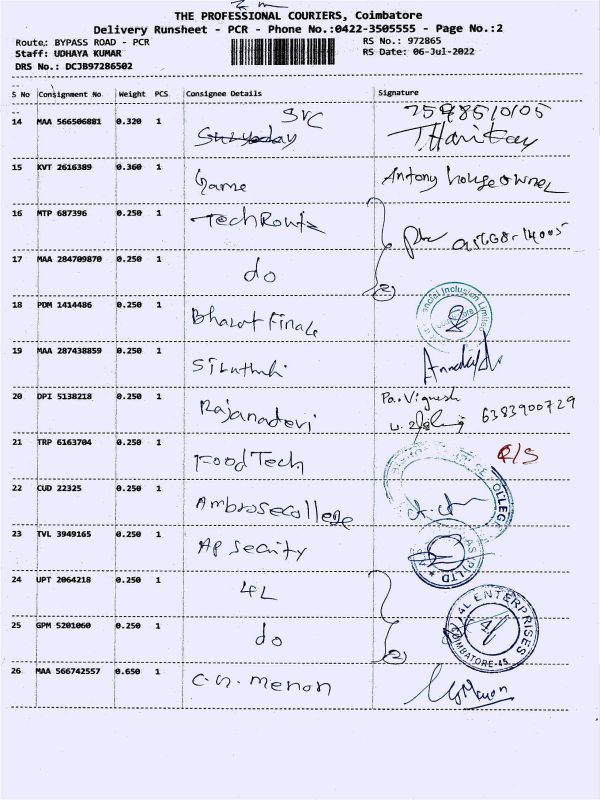 THE PROFESSIONAL COURIERS, Coimbatore
Delivery Runsheet - PCR - Phone No.:0422-3505555 - Page No.:2
Route: BYPASS ROAD - PCR
RS No.: 972865
Staff: UDHAYA KUMAR
RS Date: 06-Jul-2022
DRS No.: DCJB97286502
S No Consignment No Weight PCS Consignee Details Signature
SVC
14 MAA 566506881 0.320 1
15 KVT 2616389 0.360 1 Game Antony house owner
16 MTP 687396 0.250 1 TechRoute
17 MAA 284709870 0.250 1 do
2
18 PDM 1414486 0.250 1 Bharat Finale
ncial Inclusion Limited
19 MAA 287438859 0.250 1
20 DPI 5138218 0.250 1 Rajanadevi Pa. Vignesh
6383900729
21 TRP 6163704 0.250 1 Food Tech R/S
22 CUD 22325 0.250 1 Ambrosecollege
COLLEGE
23 TVL 3949165 0.250 1 AP Secrity
(P) LTD
24 UPT 2064218 0.250 1 4L
25 GPM 5201060 0.250 1 do
2
AL ENTERPRISES
COIMBATORE-45
26 MAA 566742557 0.650 1 C.G. Menon CG Menon